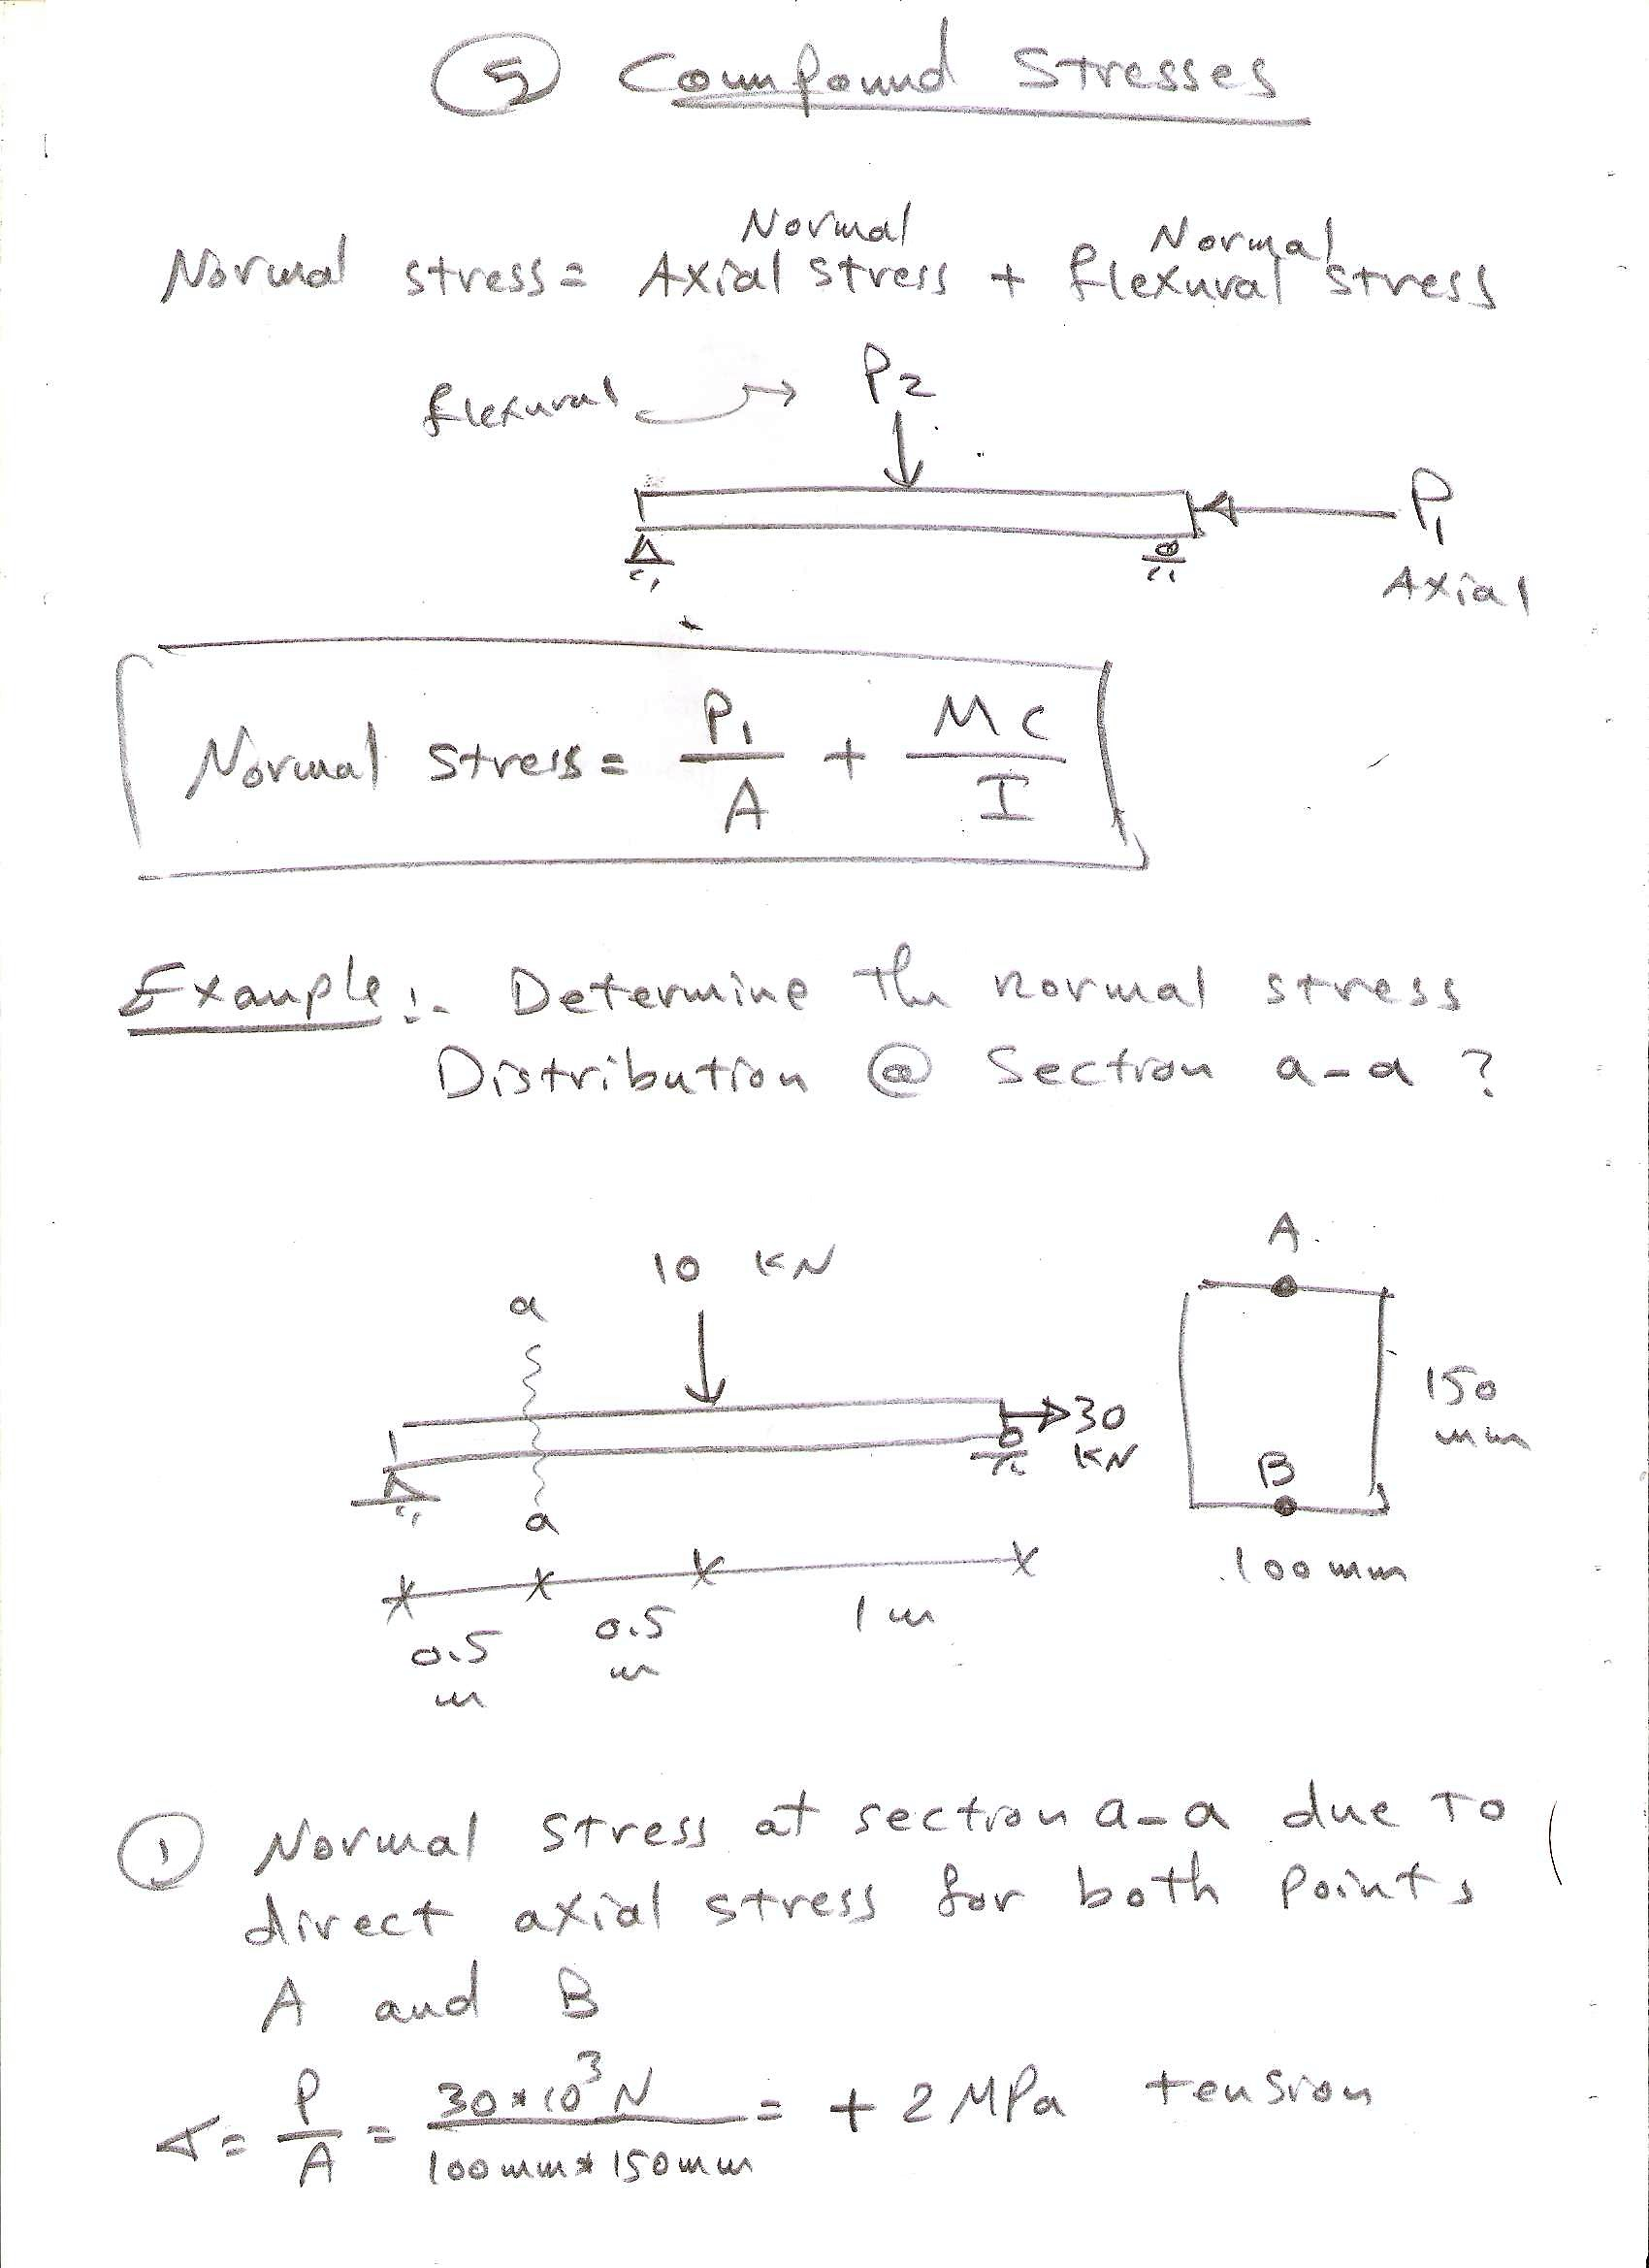 5 Compound Stresses
Normal Normal
Normal stress = Axial stress + flexural stress
flexural P2
P1
Axial
Normal stress = P1/A + MC/I
Example:- Determine the normal stress
Distribution @ Section a-a ?
A
10 KN
a
150
mm
30
KN
B
a
100 mm
0.5
m
0.5
m
1 m
1 Normal stress at section a-a due to
direct axial stress for both points
A and B
σ = P/A = 30*10³ N / 100mm * 150mm = + 2 MPa tension